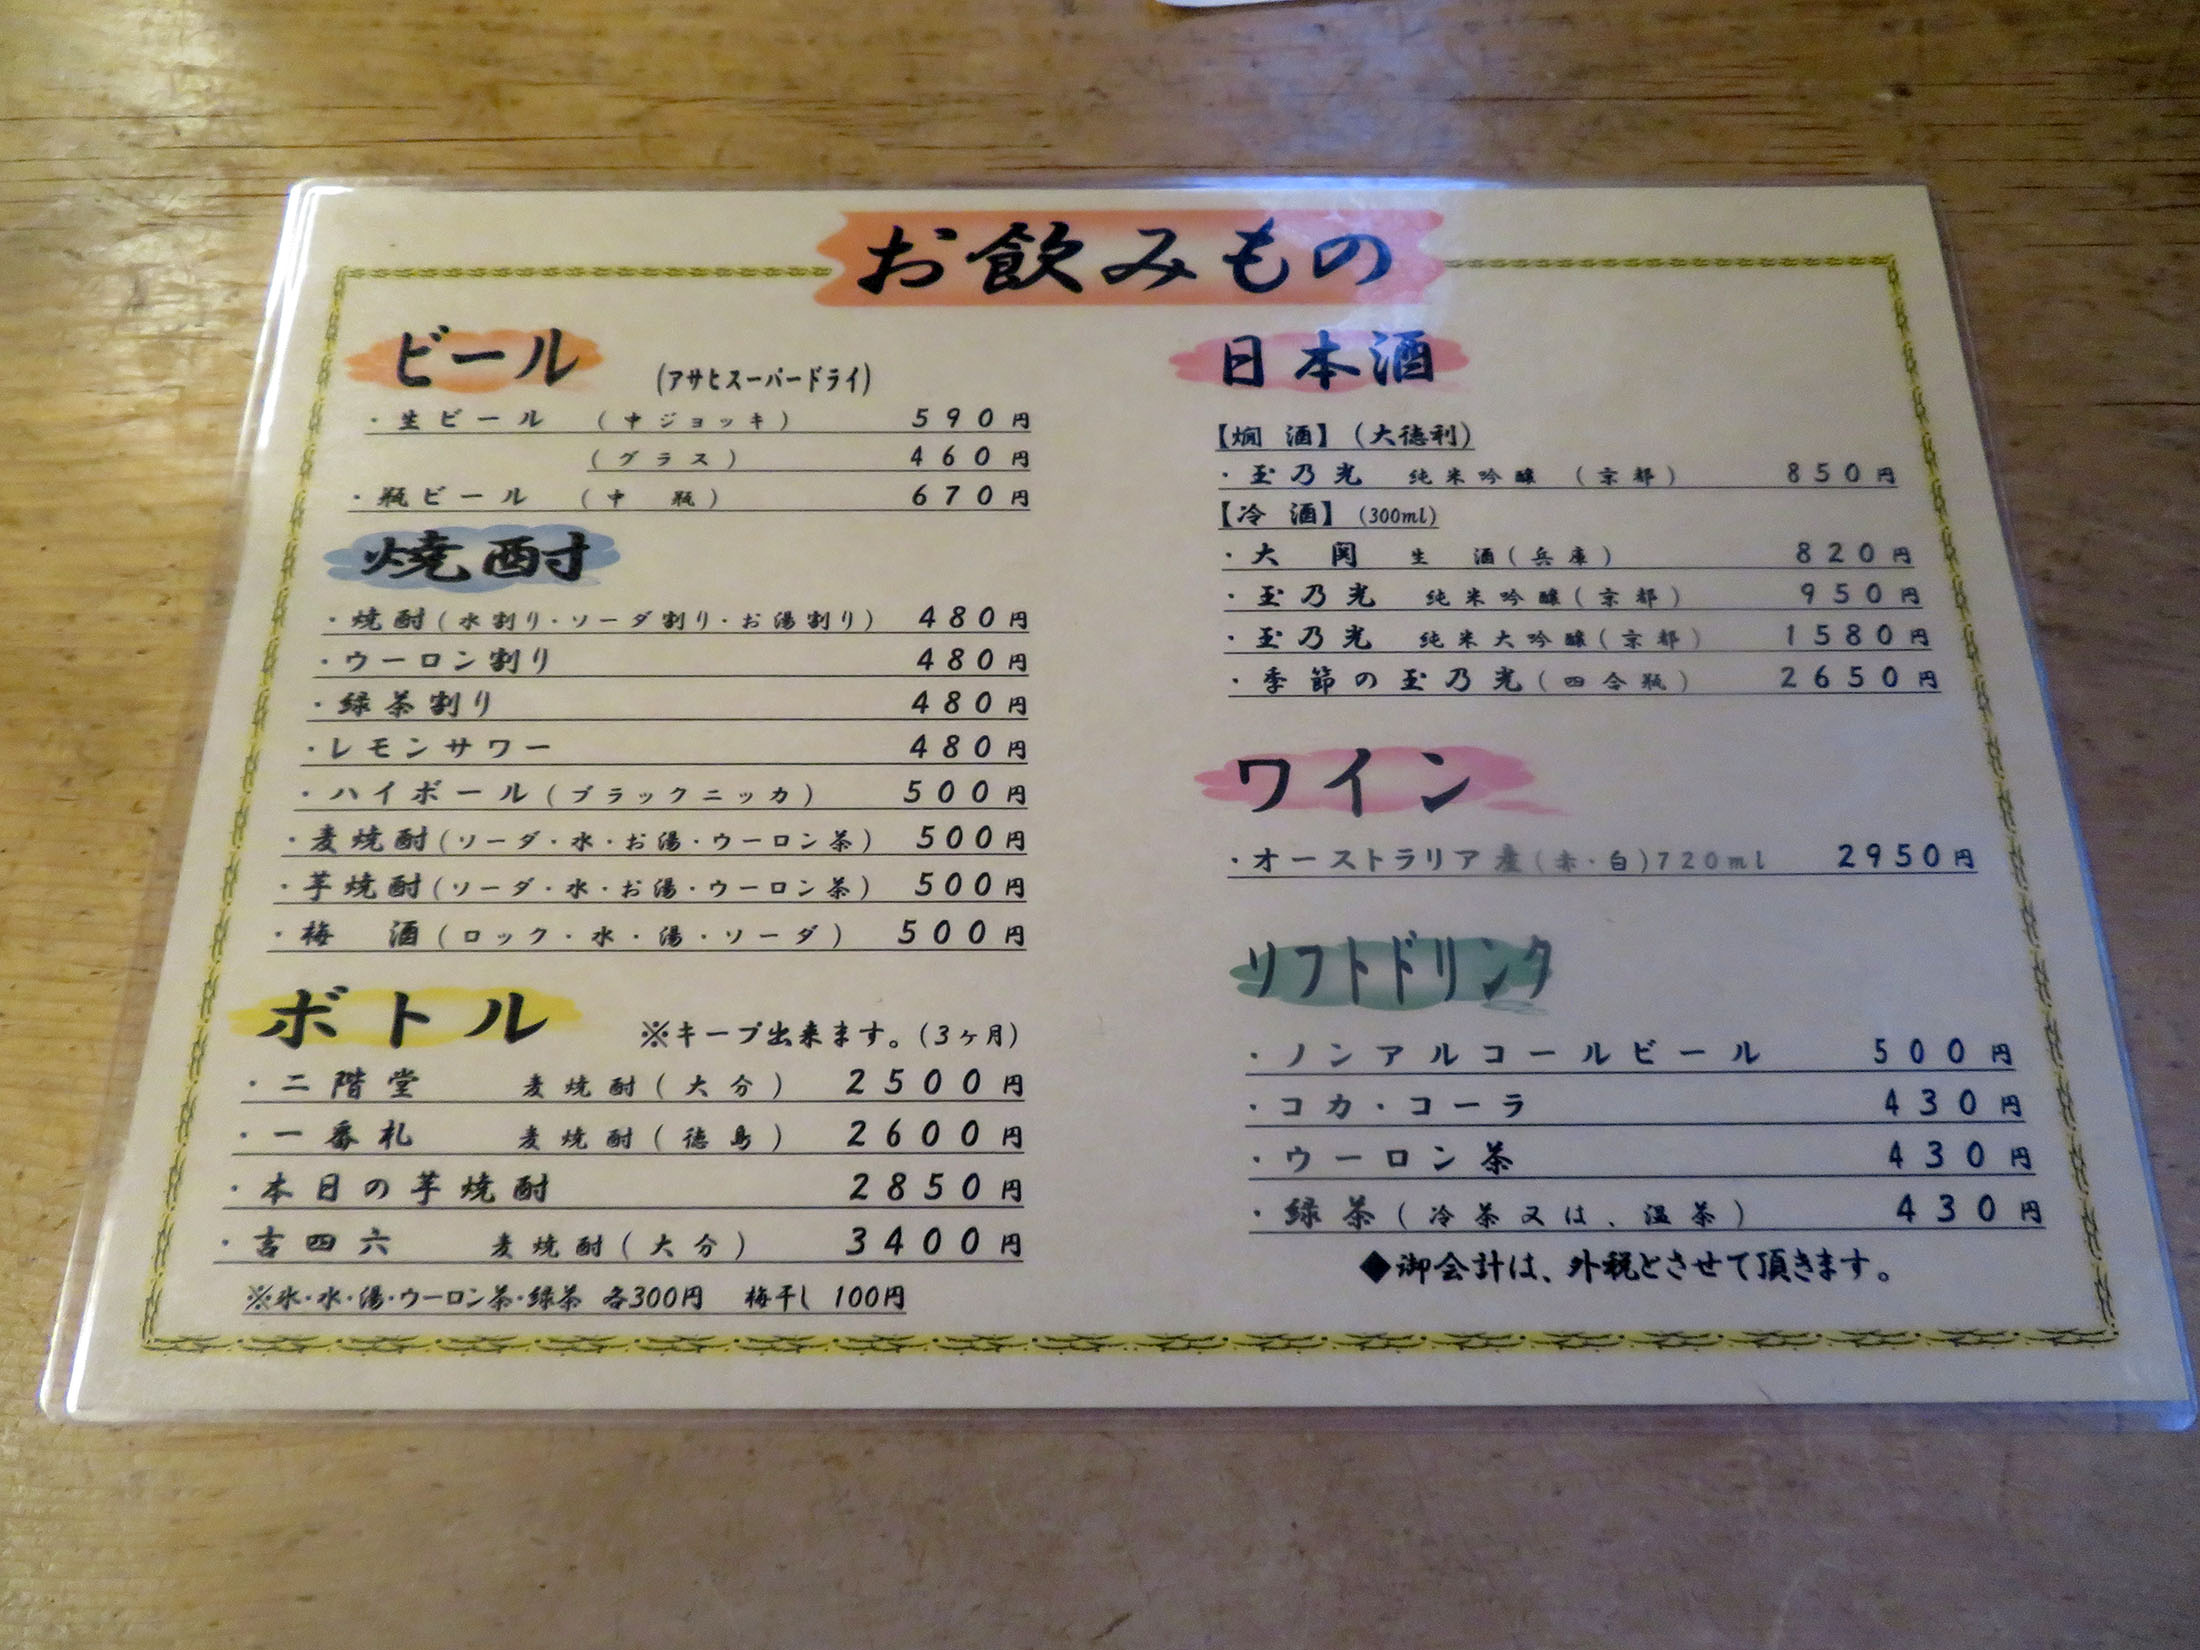 お飲みもの
ビール (アサヒスーパードライ)
・生ビール (中ジョッキ) 590円
(グラス) 460円
・瓶ビール (中 瓶) 670円
焼酎
・焼酎(水割り・ソーダ割り・お湯割り) 480円
・ウーロン割り 480円
・緑茶割り 480円
・レモンサワー 480円
・ハイボール(ブラックニッカ) 500円
・麦焼酎(ソーダ・水・お湯・ウーロン茶) 500円
・芋焼酎(ソーダ・水・お湯・ウーロン茶) 500円
・梅 酒(ロック・水・湯・ソーダ) 500円
ボトル ※キープ出来ます。(3ヶ月)
・二階堂 麦焼酎(大分) 2500円
・一番札 麦焼酎(徳島) 2600円
・本日の芋焼酎 2850円
・吉四六 麦焼酎(大分) 3400円
※氷・水・湯・ウーロン茶・緑茶 各300円 梅干し 100円
日本酒
【燗 酒】(大徳利)
・玉乃光 純米吟醸 (京都) 850円
【冷 酒】(300ml)
・大 関 生 酒(兵庫) 820円
・玉乃光 純米吟醸(京都) 950円
・玉乃光 純米大吟醸(京都) 1580円
・季節の玉乃光(四合瓶) 2650円
ワイン
・オーストラリア産(赤・白)720ml 2950円
ソフトドリンク
・ノンアルコールビール 500円
・コカ・コーラ 430円
・ウーロン茶 430円
・緑茶(冷茶又は、温茶) 430円
◆御会計は、外税とさせて頂きます。